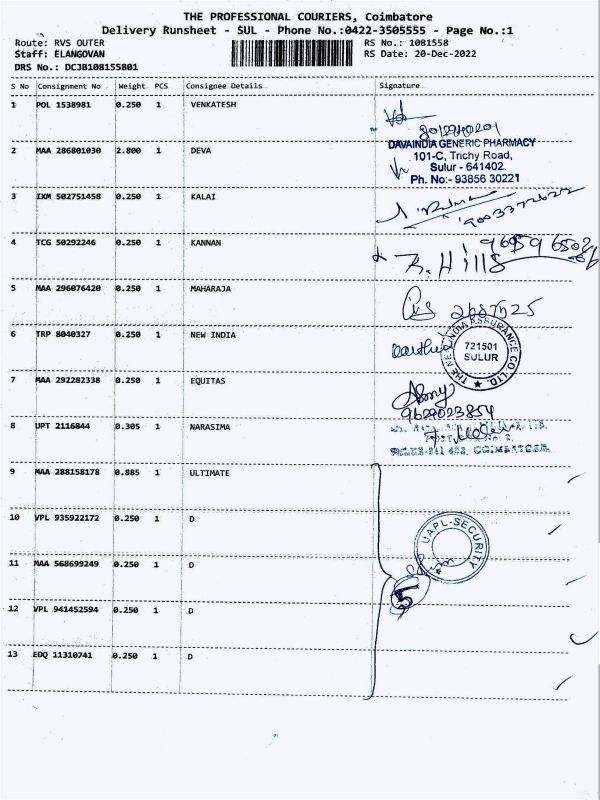 THE PROFESSIONAL COURIERS, Coimbatore
Delivery Runsheet - SUL - Phone No.:0422-3505555 - Page No.:1
Route: RVS OUTER
Staff: ELANGOVAN
DRS No.: DCJB108155801
RS No.: 1081558
RS Date: 20-Dec-2022
S No Consignment No Weight PCS Consignee Details Signature
1 POL 1538981 0.250 1 VENKATESH
2 MAA 286801030 2.800 1 DEVA
DAVAINDIA GENERIC PHARMACY
101-C, Trichy Road,
Sulur - 641402.
Ph. No:- 93856 30221
3 IXM 502751458 0.250 1 KALAI
4 TCG 50292246 0.250 1 KANNAN
R. Hills
5 MAA 296076420 0.250 1 MAHARAJA
6 TRP 8040327 0.250 1 NEW INDIA
THE NEW INDIA ASSURANCE CO. LTD.
721501
SULUR
7 MAA 292282338 0.250 1 EQUITAS
9629023854
8 UPT 2116844 0.305 1 NARASIMA
9 MAA 288158178 0.885 1 ULTIMATE
10 VPL 935922172 0.250 1 D
UAPL-SECURITY
11 MAA 568699249 0.250 1 D
5
12 VPL 941452594 0.250 1 D
13 EDQ 11310741 0.250 1 D